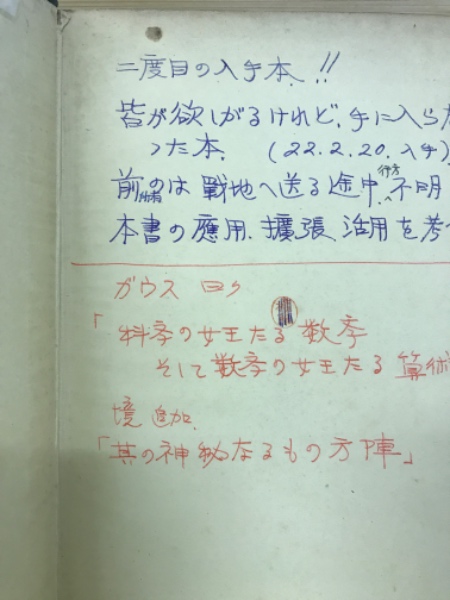 二度目の入手本!!
皆が欲しがるけれど、手に入らな
つた本. (22.2.20.入手)
前のは 戰地へ送る途中行方不明
本書の應用.擴張 活用を考
ガウス 曰ク
「科学の女王たる数学
そして数学の女王たる 算術
境 追加.
「其の神秘なるもの方陣」